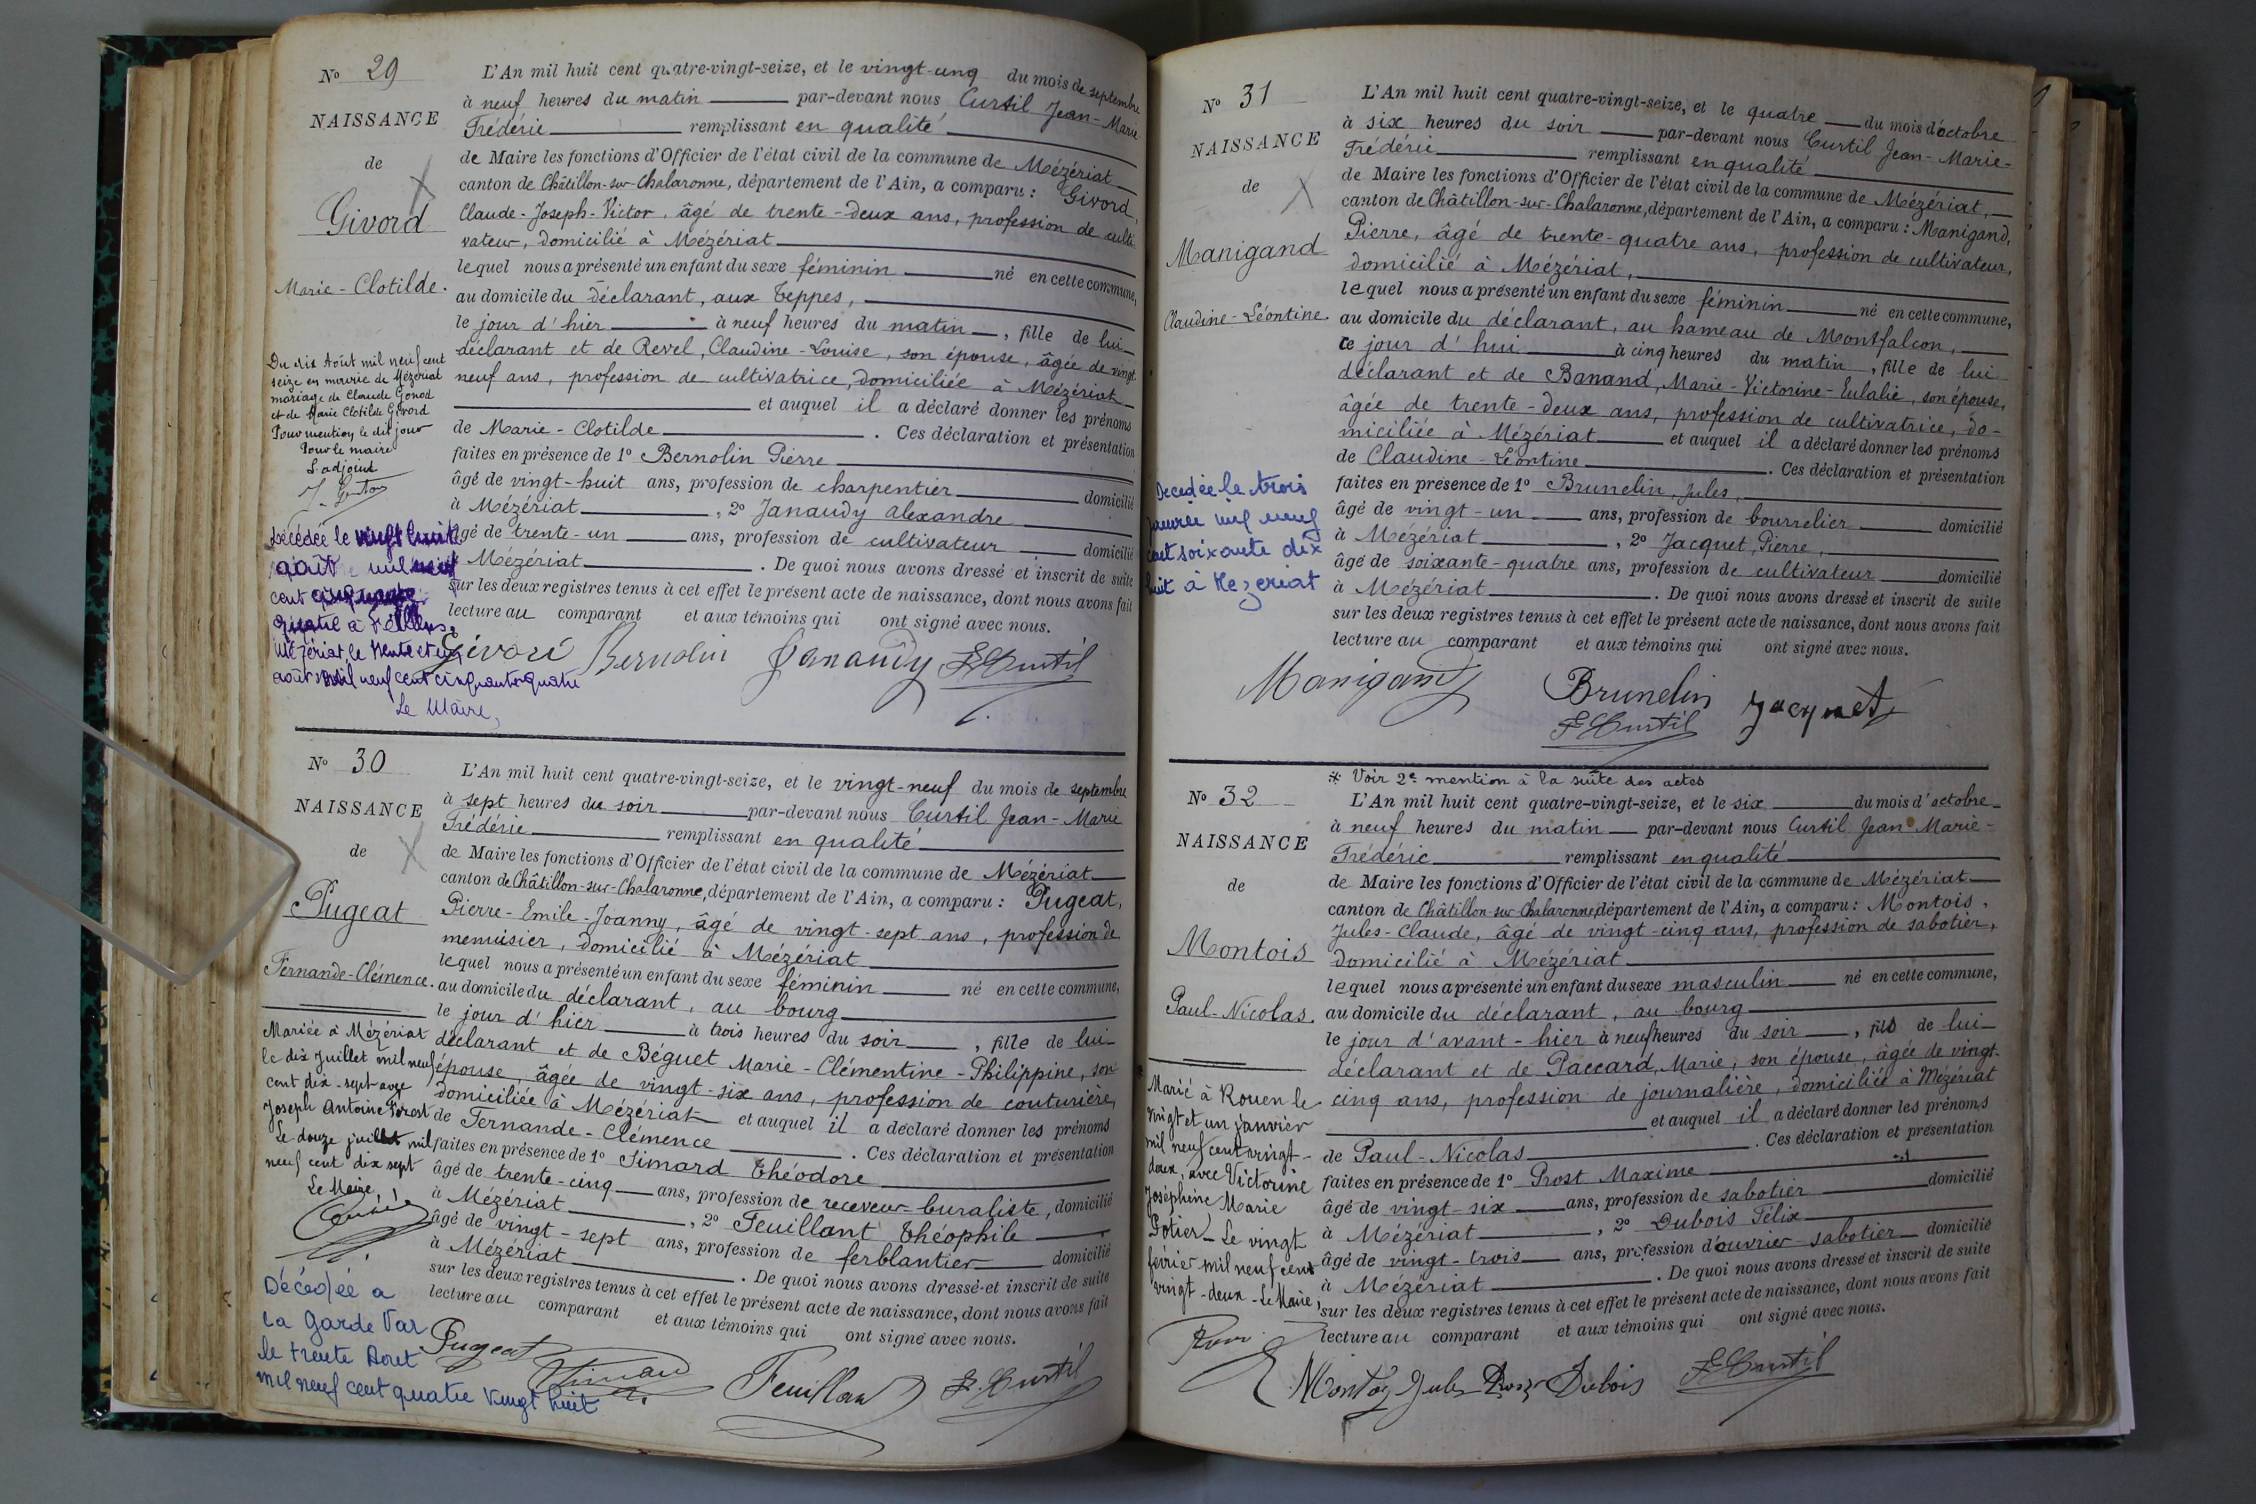 Nº 29
NAISSANCE
de
Givord
Marie-Clotilde.
L'An mil huit cent quatre-vingt-seize, et le vingt-cinq du mois de septembre
à neuf heures du matin par-devant nous Curtil Jean-Marie
Frédéric remplissant en qualité
de Maire les fonctions d'Officier de l'état civil de la commune de Mézériat
canton de Châtillon-sur-Chalaronne, département de l'Ain, a comparu : Givord,
Claude-Joseph-Victor, âgé de trente-deux ans, profession de culti-
vateur, domicilié à Mézériat
lequel nous a présenté un enfant du sexe féminin né en cette commune,
au domicile du déclarant, aux Teppes,
le jour d'hier à neuf heures du matin, fille de lui
déclarant et de Revel, Claudine-Louise, son épouse, âgée de vingt-
neuf ans, profession de cultivatrice, domiciliée à Mézériat
et auquel il a déclaré donner les prénoms
de Marie-Clotilde. Ces déclaration et présentation
faites en présence de 1º Bernolin Pierre
âgé de vingt-huit ans, profession de charpentier domicilié
à Mézériat, 2º Janaudy Alexandre
âgé de trente-un ans, profession de cultivateur domicilié
à Mézériat. De quoi nous avons dressé et inscrit de suite
sur les deux registres tenus à cet effet le présent acte de naissance, dont nous avons fait
lecture au comparant et aux témoins qui ont signé avec nous.
Givord Bernolin Janaudy F. Curtil
Du dix Août mil neuf cent
seize en mairie de Mézériat
mariage de Claude Gonod
et de Marie Clotilde Givord
Pour mention le dit jour
Pour le maire
L'adjoint
Décédée le vingt huit
août mil neuf
cent cinquante
quatre à
Mézériat le trente et un
août mil neuf cent cinquante quatre
Le Maire,
Nº 30
NAISSANCE
de
Pugeat
Fernande-Clémence.
L'An mil huit cent quatre-vingt-seize, et le vingt-neuf du mois de septembre
à sept heures du soir par-devant nous Curtil Jean-Marie
Frédéric remplissant en qualité
de Maire les fonctions d'Officier de l'état civil de la commune de Mézériat
canton de Châtillon-sur-Chalaronne, département de l'Ain, a comparu : Pugeat,
Pierre-Emile-Joanny, âgé de vingt-sept ans, profession de
menuisier, domicilié à Mézériat
lequel nous a présenté un enfant du sexe féminin né en cette commune,
au domicile du déclarant, au bourg
le jour d'hier à trois heures du soir, fille de lui
déclarant et de Béguet Marie-Clémentine-Philippine, son
épouse, âgée de vingt-six ans, profession de couturière,
domiciliée à Mézériat et auquel il a déclaré donner les prénoms
de Fernande-Clémence. Ces déclaration et présentation
faites en présence de 1º Simard Théodore
âgé de trente-cinq ans, profession de receveur-buraliste, domicilié
à Mézériat, 2º Feuillant Théophile
âgé de vingt-sept ans, profession de ferblantier domicilié
à Mézériat. De quoi nous avons dressé et inscrit de suite
sur les deux registres tenus à cet effet le présent acte de naissance, dont nous avons fait
lecture au comparant et aux témoins qui ont signé avec nous.
Pugeat Simard Feuillant F. Curtil
Mariée à Mézériat
le dix Juillet mil neuf
cent dix-sept avec
Joseph Antoine Forest
Le douze juillet mil
neuf cent dix sept
Le Maire,
Décédée a
La Garde Var
le trente Aout
mil neuf cent quatre vingt huit
Nº 31
NAISSANCE
de
Manigand
Claudine-Léontine.
L'An mil huit cent quatre-vingt-seize, et le quatre du mois d'octobre
à six heures du soir par-devant nous Curtil Jean-Marie-
Frédéric remplissant en qualité
de Maire les fonctions d'Officier de l'état civil de la commune de Mézériat,
canton de Châtillon-sur-Chalaronne, département de l'Ain, a comparu : Manigand,
Pierre, âgé de trente-quatre ans, profession de cultivateur,
domicilié à Mézériat,
lequel nous a présenté un enfant du sexe féminin né en cette commune,
au domicile du déclarant, au hameau de Montfalcon,
ce jour d'hui à cinq heures du matin, fille de lui
déclarant et de Banand, Marie-Victorine-Eulalie, son épouse,
âgée de trente-deux ans, profession de cultivatrice, do-
miciliée à Mézériat et auquel il a déclaré donner les prénoms
de Claudine-Léontine. Ces déclaration et présentation
faites en présence de 1º Brunelin, Jules,
âgé de vingt-un ans, profession de bourrelier domicilié
à Mézériat, 2º Jacquet, Pierre,
âgé de soixante-quatre ans, profession de cultivateur domicilié
à Mézériat. De quoi nous avons dressé et inscrit de suite
sur les deux registres tenus à cet effet le présent acte de naissance, dont nous avons fait
lecture au comparant et aux témoins qui ont signé avec nous.
Manigand Brunelin Jacquet
F. Curtil
Decedée le trois
janvier mil neuf
cent soixante dix
huit à Mezeriat
Nº 32
NAISSANCE
de
Montois
Paul-Nicolas.
* Voir 2e mention à la suite des actes
L'An mil huit cent quatre-vingt-seize, et le six du mois d'octobre
à neuf heures du matin par-devant nous Curtil Jean Marie-
Frédéric remplissant en qualité
de Maire les fonctions d'Officier de l'état civil de la commune de Mézériat
canton de Châtillon-sur-Chalaronne, département de l'Ain, a comparu : Montois,
Jules-Claude, âgé de vingt-cinq ans, profession de sabotier,
domicilié à Mézériat
lequel nous a présenté un enfant du sexe masculin né en cette commune,
au domicile du déclarant, au bourg
le jour d'avant-hier à neuf heures du soir, fils de lui
déclarant et de Paccard, Marie, son épouse, âgée de vingt-
cinq ans, profession de journalière, domiciliée à Mézériat
et auquel il a déclaré donner les prénoms
de Paul-Nicolas. Ces déclaration et présentation
faites en présence de 1º Prost Maxime
âgé de vingt-six ans, profession de sabotier domicilié
à Mézériat, 2º Dubois Félix
âgé de vingt-trois ans, profession d'ouvrier-sabotier domicilié
à Mézériat. De quoi nous avons dressé et inscrit de suite
sur les deux registres tenus à cet effet le présent acte de naissance, dont nous avons fait
lecture au comparant et aux témoins qui ont signé avec nous.
Montoy Jules Prost Dubois F. Curtil
* Marié à Rouen le
vingt et un janvier
mil neuf cent vingt-
deux, avec Victorine
Joséphine Marie
Potier_ Le vingt
février mil neuf cent
vingt-deux - Le Maire,